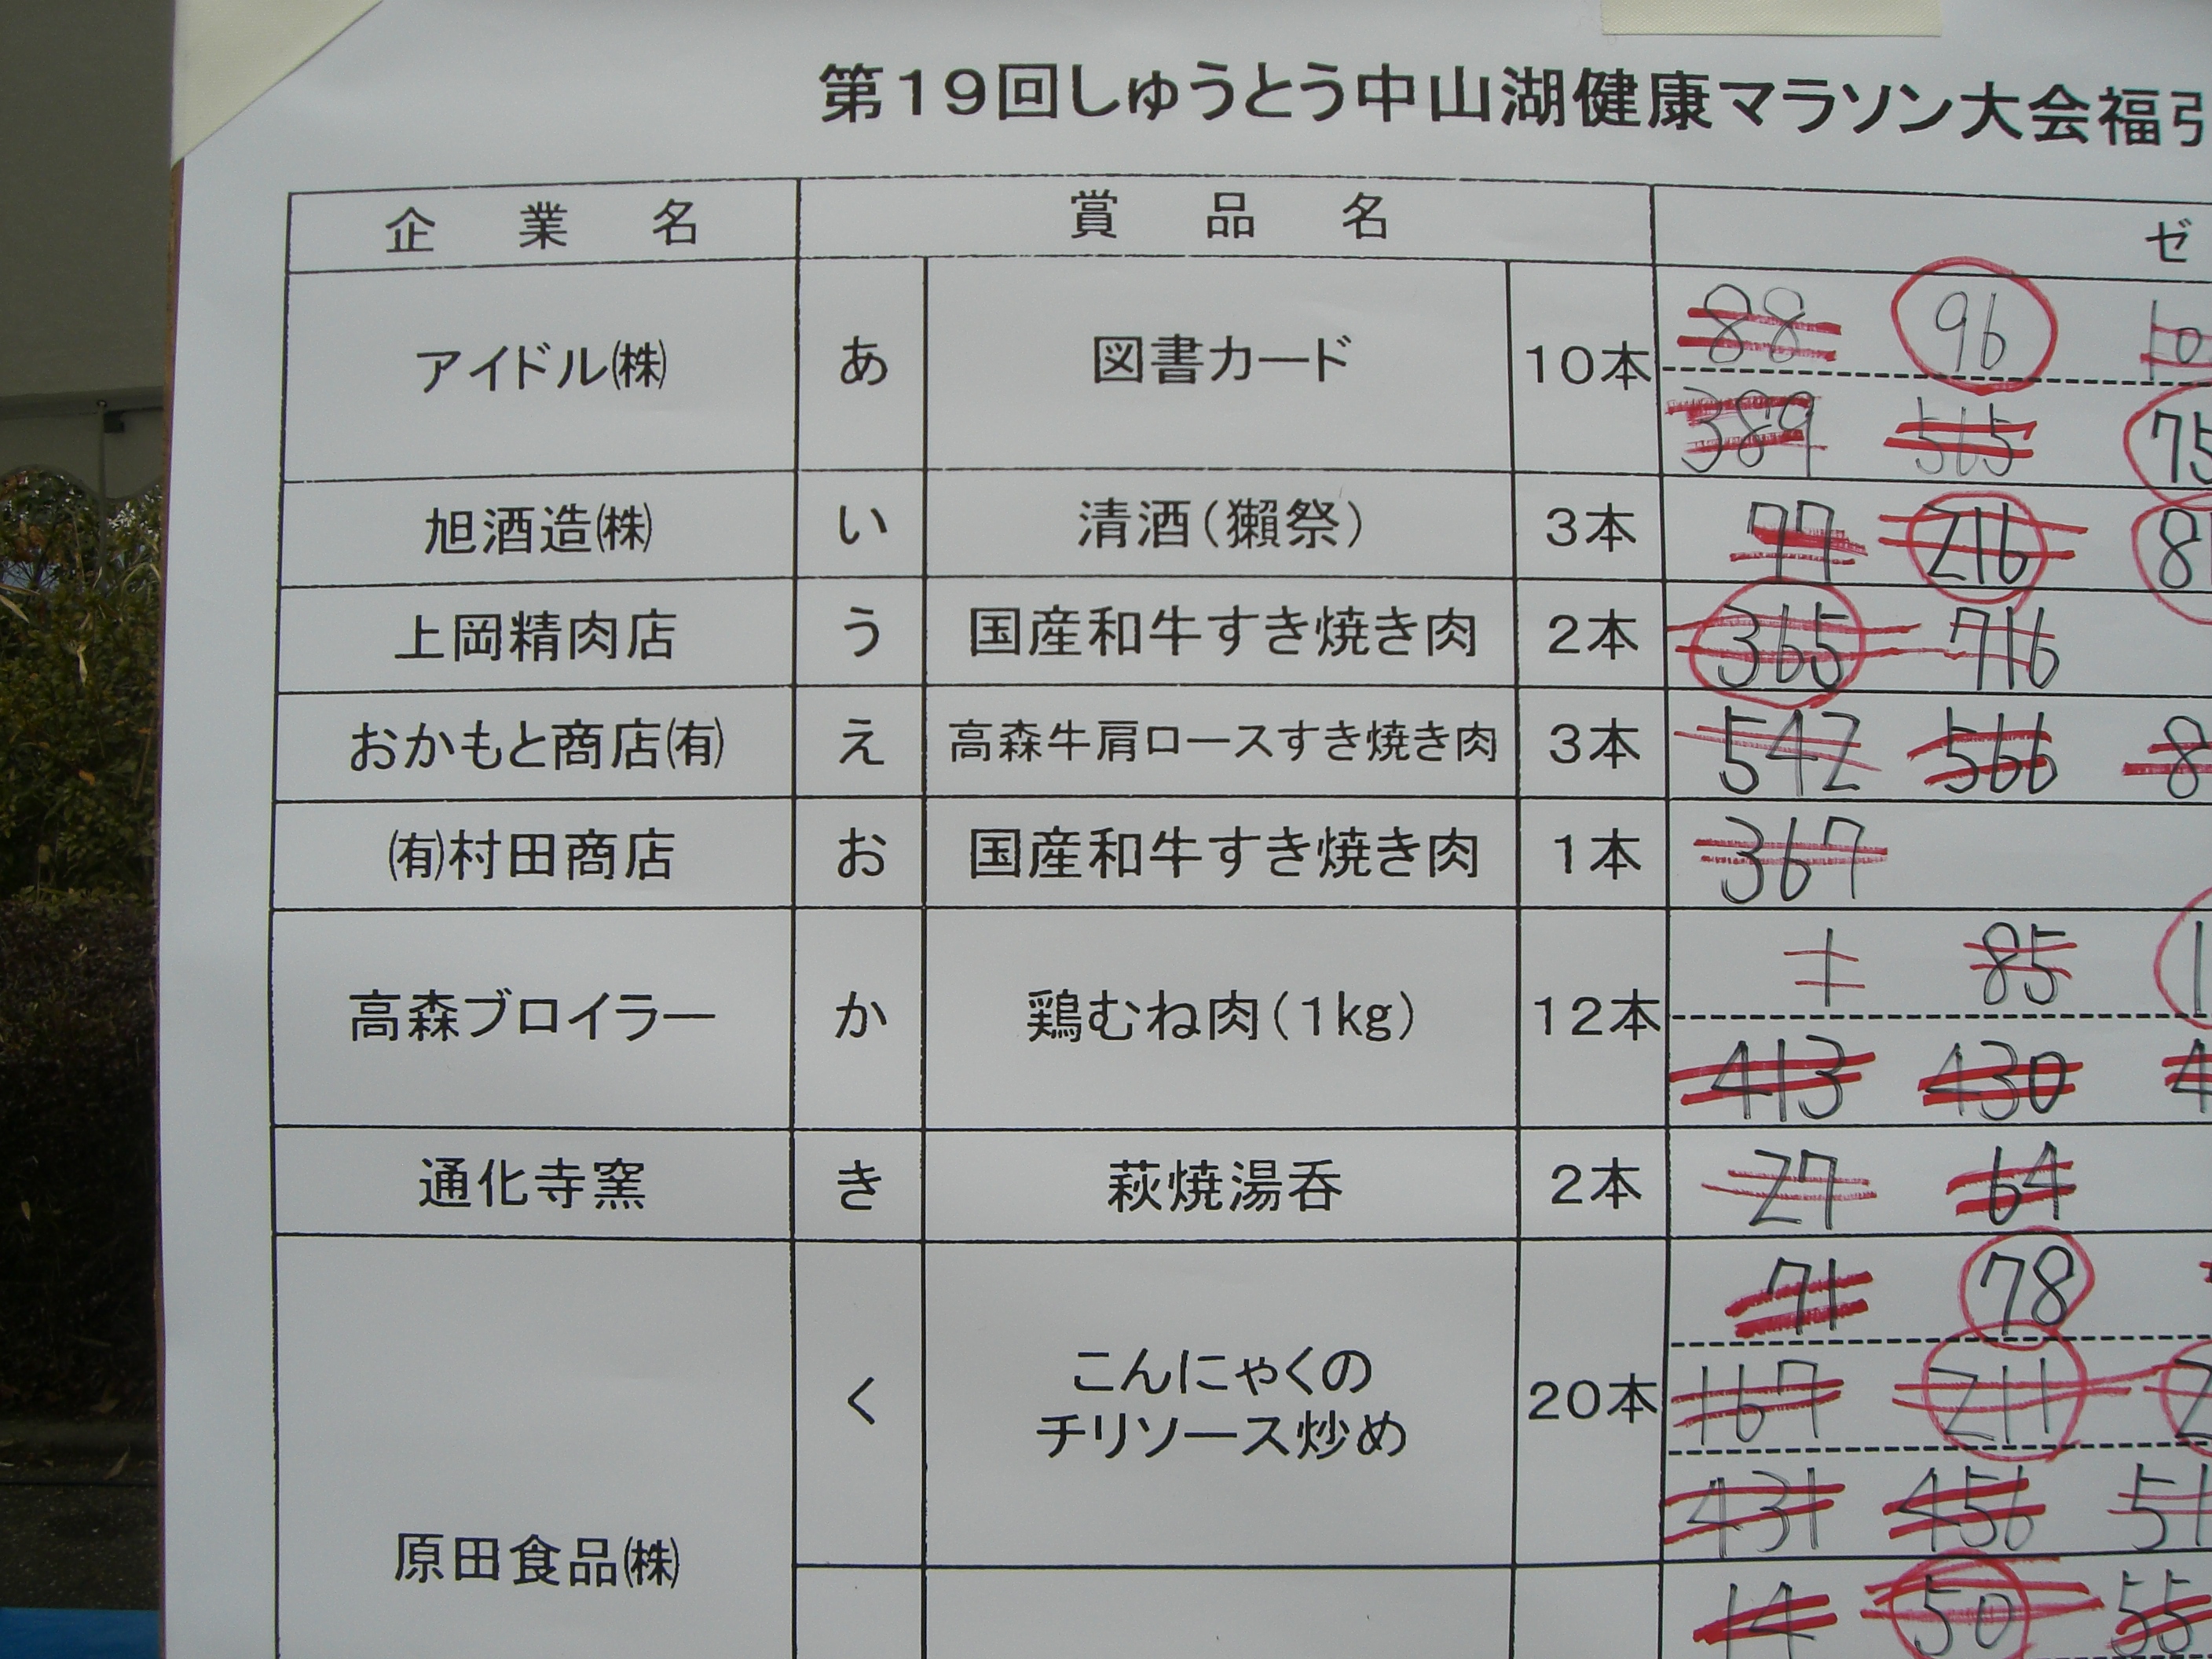 第19回しゅうとう中山湖健康マラソン大会福引
企業名 賞品名 ゼ
アイドル㈱ あ 図書カード 10本 88 96 10
389 565 75
旭酒造㈱ い 清酒(獺祭) 3本 77 216 81
上岡精肉店 う 国産和牛すき焼き肉 2本 365 716
おかもと商店㈲ え 高森牛肩ロースすき焼き肉 3本 542 566 8
㈲村田商店 お 国産和牛すき焼き肉 1本 367
高森ブロイラー か 鶏むね肉(1kg) 12本 1 85 1
413 430 4
通化寺窯 き 萩焼湯呑 2本 27 64
71 78
原田食品㈱ く こんにゃくの
チリソース炒め 20本 167 211 2
431 456 51
14 50 55